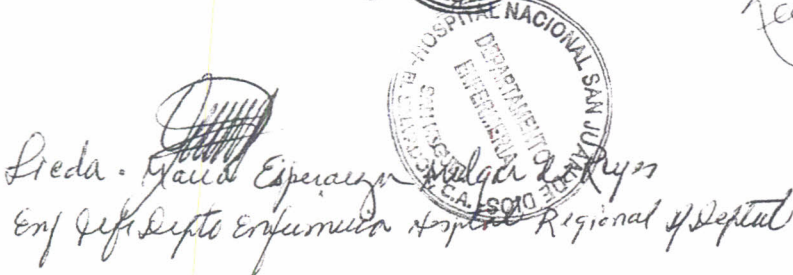 HOSPITAL NACIONAL SAN JUAN DE DIOS
DEPARTAMENTO
ENFERMERIA
C.A.
Licda. María Esperanza Melgar de Reyes
Enf Jefe Depto Enfermería Hospital Regional y Deptal